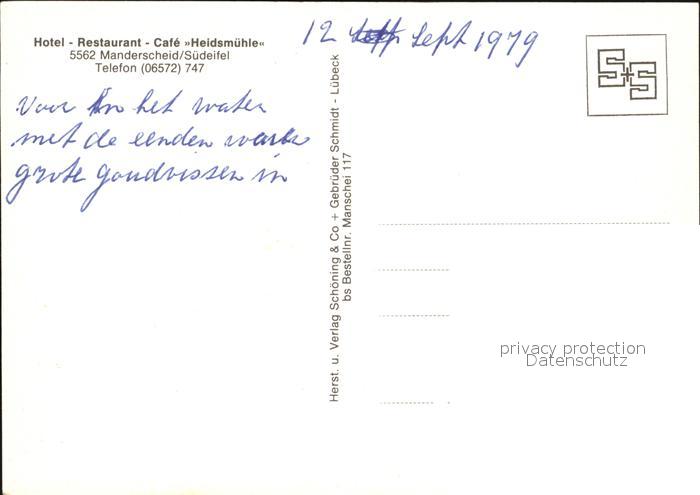 Hotel - Restaurant - Café »Heidsmühle«
5562 Manderscheid/Südeifel
Telefon (06572) 747
12 Sept 1979
Voor in het water
met de eenden waren
grote goudvissen in
Herst. u. Verlag Schöning & Co + Gebrüder Schmidt - Lübeck
bs Bestellnr. Manschei 117
S+S
privacy protection
Datenschutz